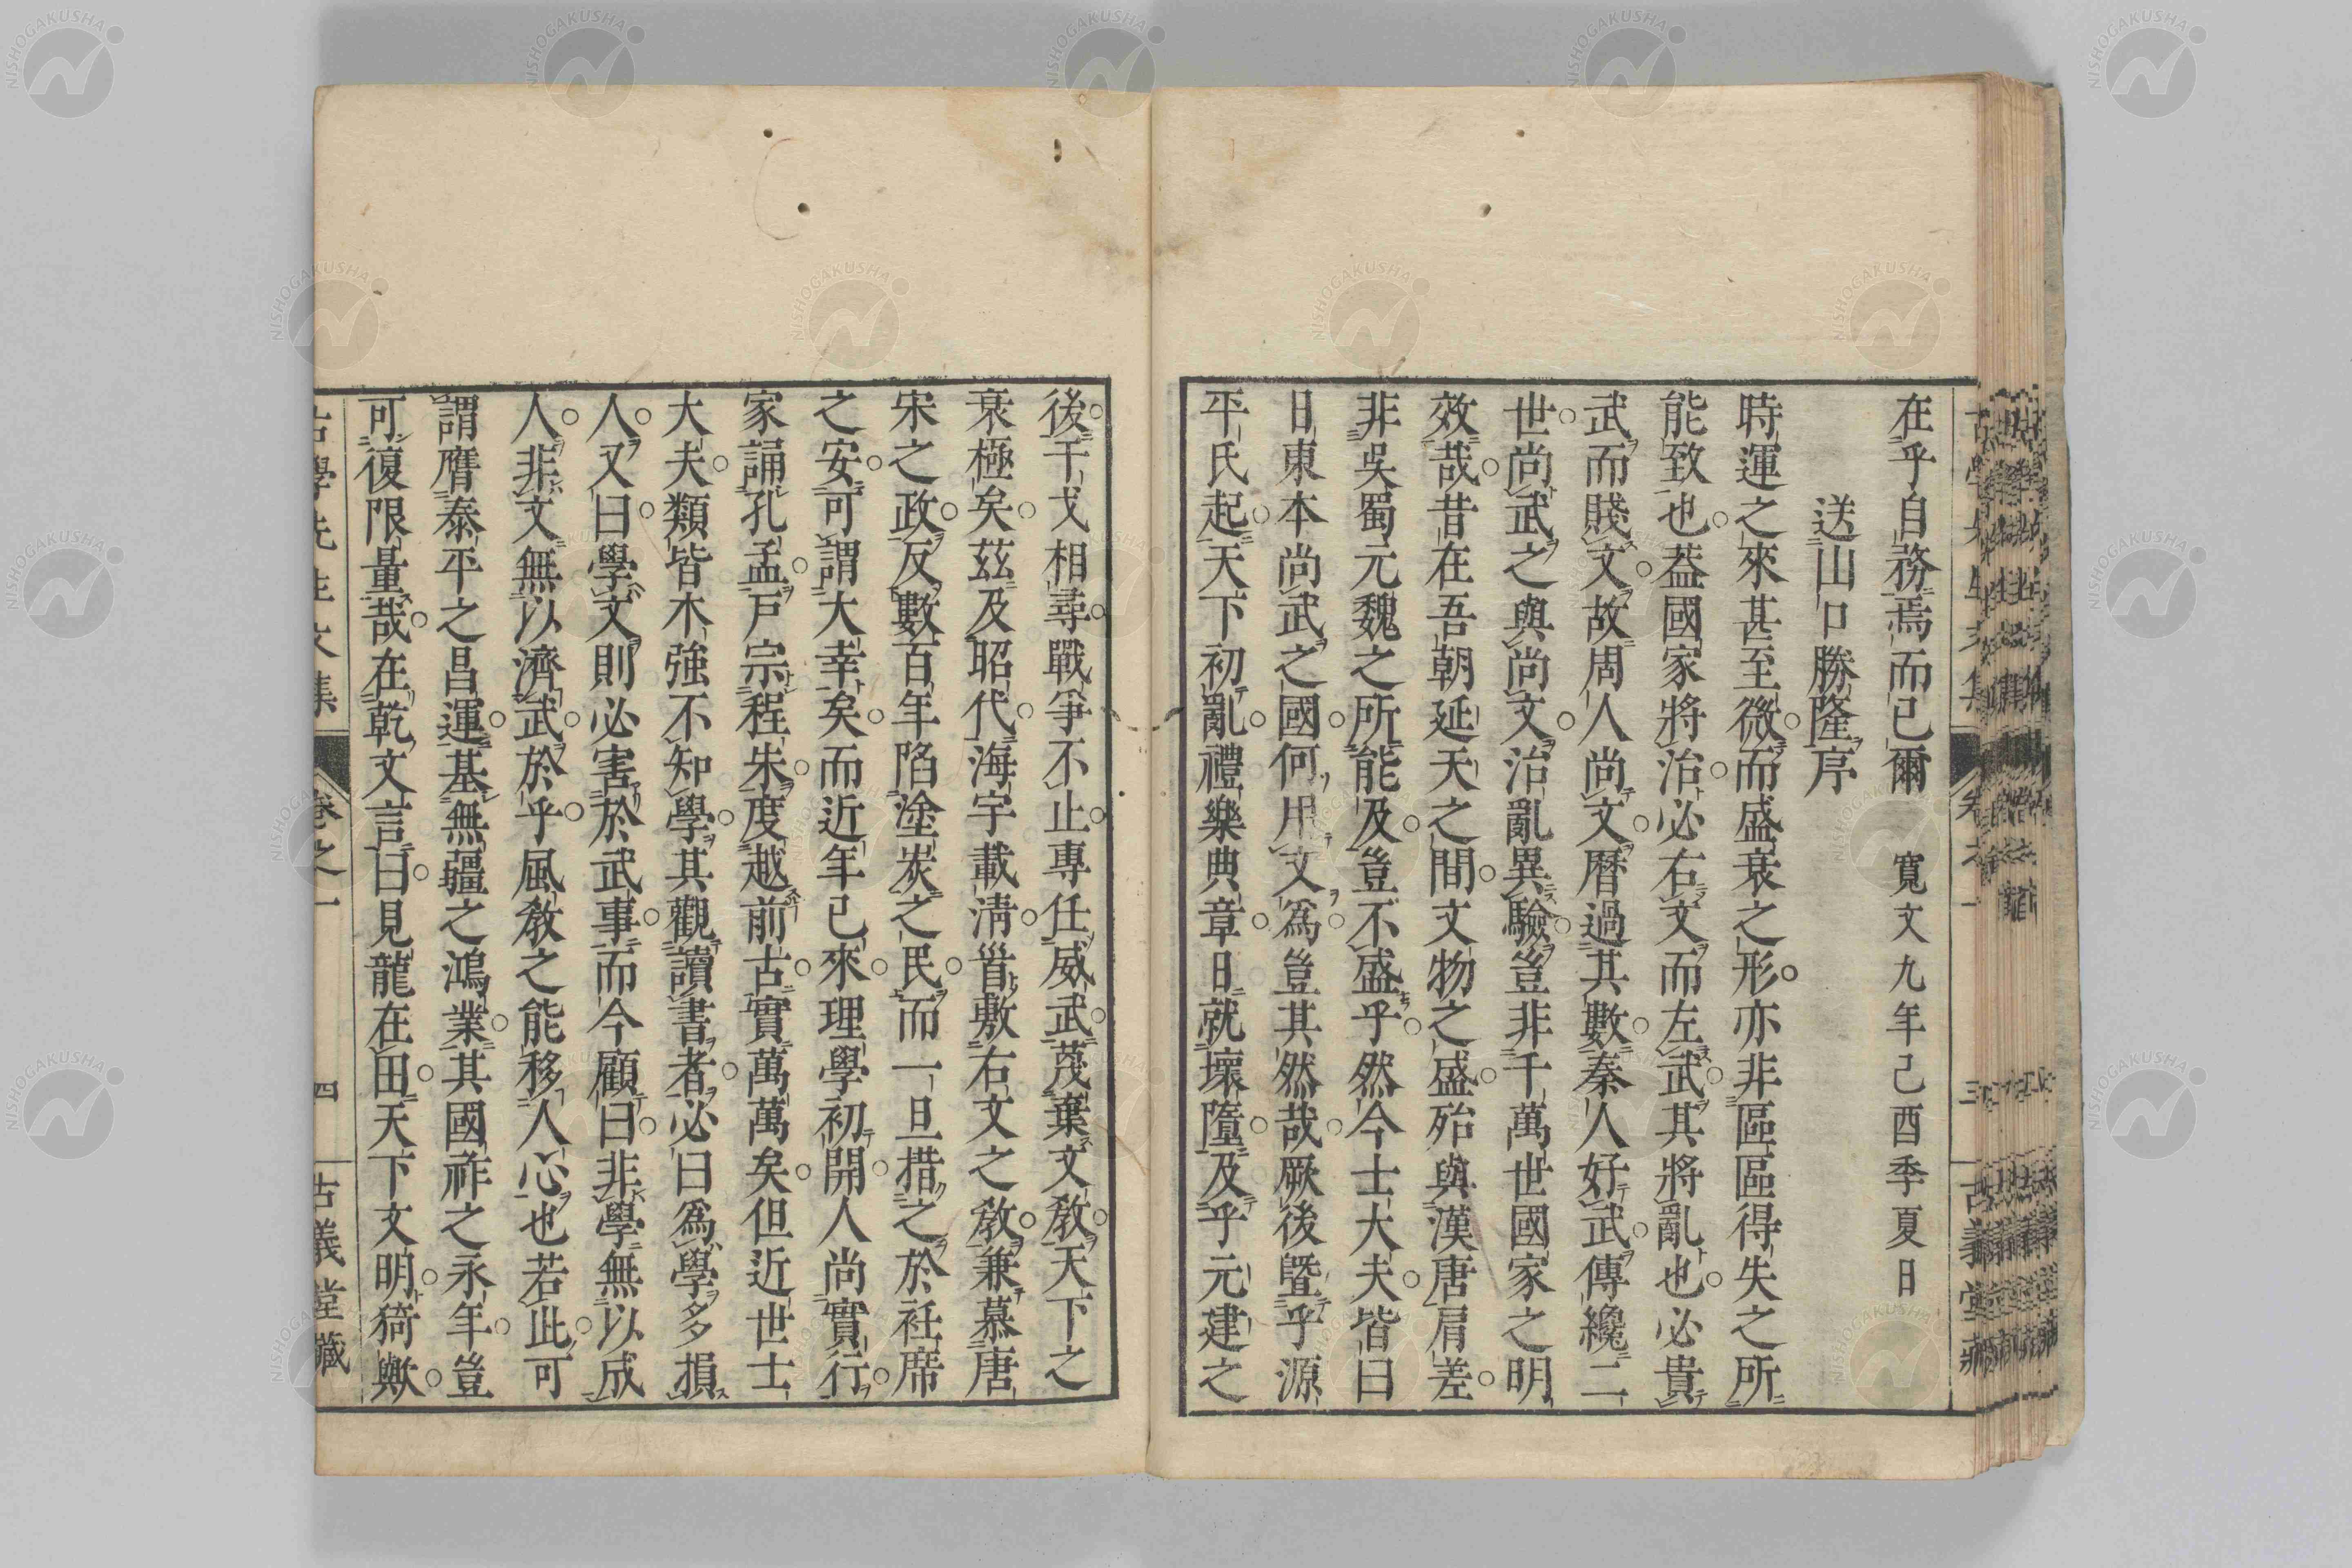 在乎自務焉而已爾 寬文九年己酉季夏日
送山口勝隆序
時運之來甚至微而盛衰之形亦非區區得失之所
能致也蓋國家將治必右文而左武其將亂也必貴
武而賤文故周人尚文曆過其數秦人好武傳纔二
世尚武之與尚文治亂異驗豈非千萬世國家之明
效哉昔在吾朝延天之間文物之盛殆與漢唐肩差
非吳蜀元魏之所能及豈不盛乎然今士大夫皆曰
日東本尚武之國何用文爲豈其然哉厥後曁乎源
平氏起天下初亂禮樂典章日就壞墮及乎元建之
後干戈相尋戰爭不止專任威武茂棄文敎天下之
衰極矣茲及昭代海宇載淸首敷右文之敎兼慕唐
宋之政反數百年陷塗炭之民而一旦措之於衽席
之安可謂大幸矣而近年已來理學初開人尚實行
家誦孔孟戸宗程朱度越前古實萬萬矣但近世士
大夫類皆木強不知學其觀讀書者必曰爲學多損
人又曰學文則必害於武事而今顧曰非學無以成
人非文無以濟武於乎風敎之能移人心也若此可
謂膺泰平之昌運基無疆之鴻業其國祚之永年豈
可復限量哉在乾文言曰見龍在田天下文明猗歟
古學先生文集 卷之一 四 古義堂藏
古學先生文集 卷之一 三 古義堂藏
NISHOGAKUSHA